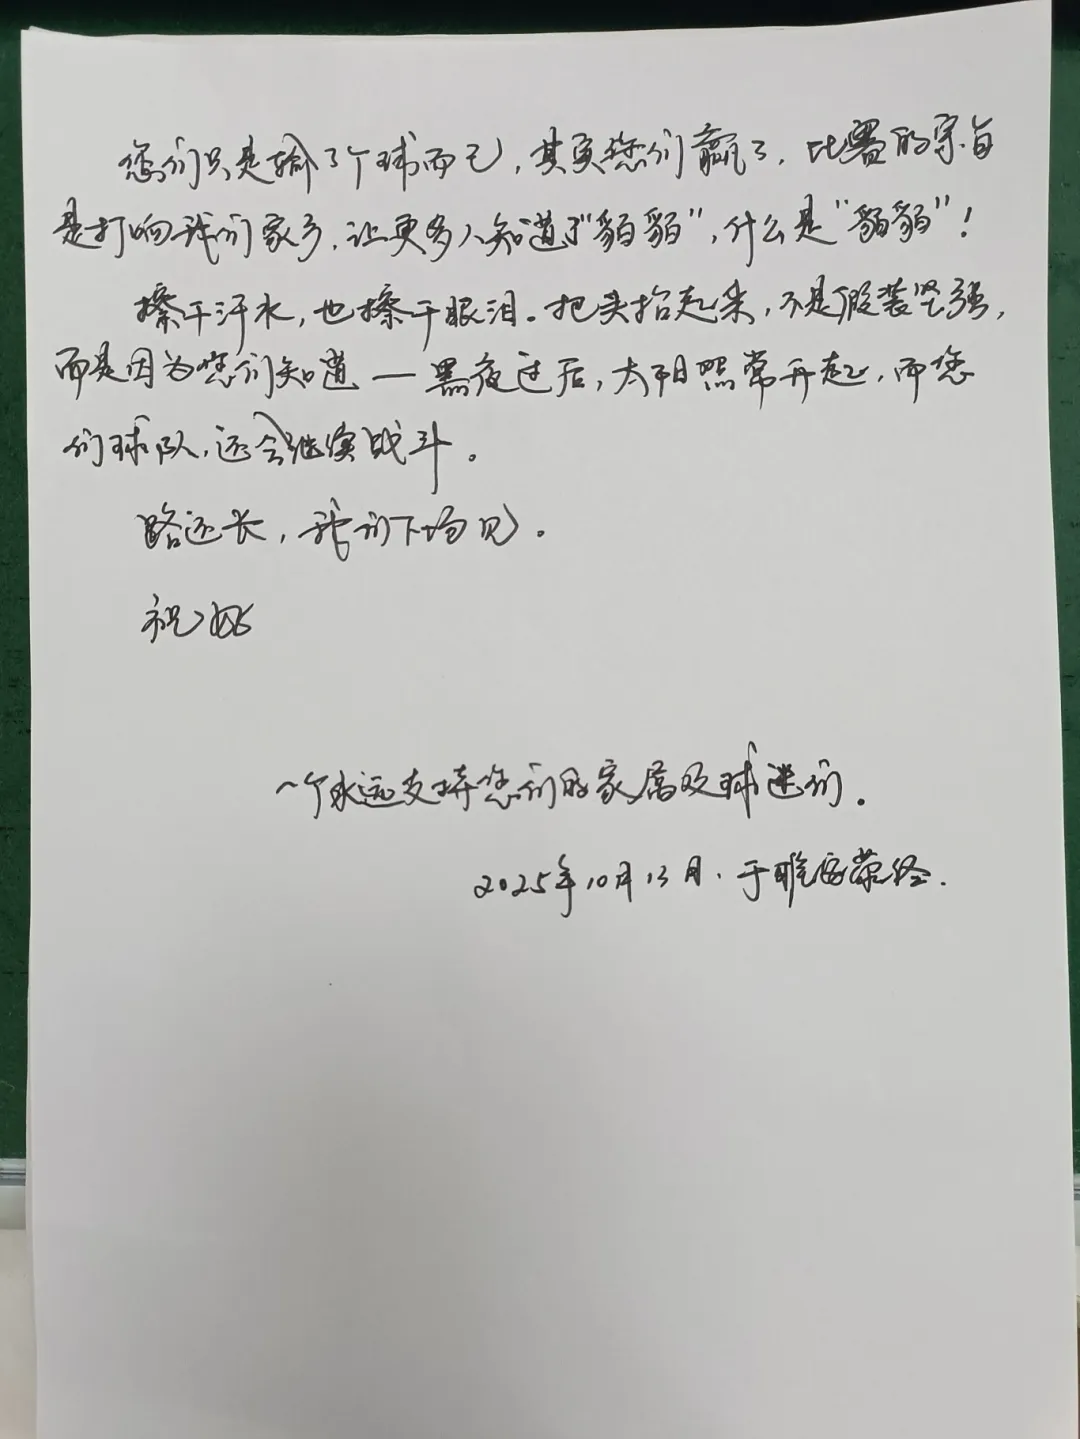 您们只是输了个球而已，其实您们赢了，比赛的宗旨
是打响我们家乡，让更多人知道了“貊貊”，什么是“貊貊”！
擦干汗水，也擦干眼泪。把头抬起来，不是假装坚强，
而是因为您们知道—黑夜过后，太阳照常升起，而您
们球队，还会继续战斗。
路还长，我们下场见。
祝好
一个永远支持您们的家属及球迷们。
2025年10月13日.于雅安荥经.